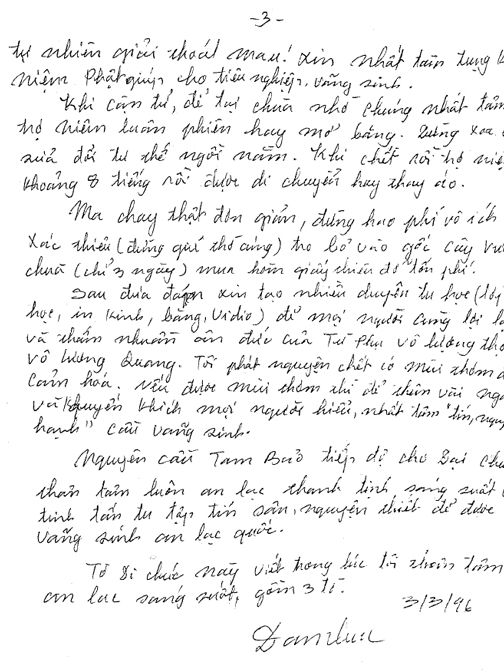 -3-
tự nhiên giải thoát mau! xin nhất tâm tụng k
niệm Phật giúp cho tiêu nghiệp, vãng sinh.
Khi cận tử, để tại chùa nhờ chúng nhất tâm
trợ niệm luân phiên hay mở băng. Đừng xoa
sửa đổi tư thế ngồi nằm. Khi chết rồi trợ niệ
khoảng 8 tiếng rồi được di chuyển hay thay áo.
Ma chay thật đơn giản, đừng hao phí vô ích
Xác thiêu (đừng quí thờ cúng) tro bỏ vào gốc cây vư
chùa (chỉ 3 ngày) mua hòm giấy thiêu đỡ tốn phí.
Sau đưa đám xin tạo nhiều duyên tu học (
học, in kinh, băng, vidio) để mọi người cùng lợi l
và thấm nhuần ân đức của Từ Phụ vô lượng thọ
vô lượng Quang. Tôi phát nguyện chết có mùi thơm đ
cảm hóa. nếu được mùi thơm thì để thêm vài ng
và khuyến khích mọi người hiểu, nhất tâm "tín, nguy
hạnh" cầu vãng sinh.
Nguyện cầu Tam Bảo tiếp độ cho Đại chú
thân tâm luôn an lạc thanh tịnh sáng suốt
tinh tấn tu tập tín sâu, nguyện thiết để được
vãng sinh an lạc quốc.
Tờ Di chúc này viết trong lúc tôi thân tâm
an lạc sáng suốt, gồm 3 tờ.
3/3/96